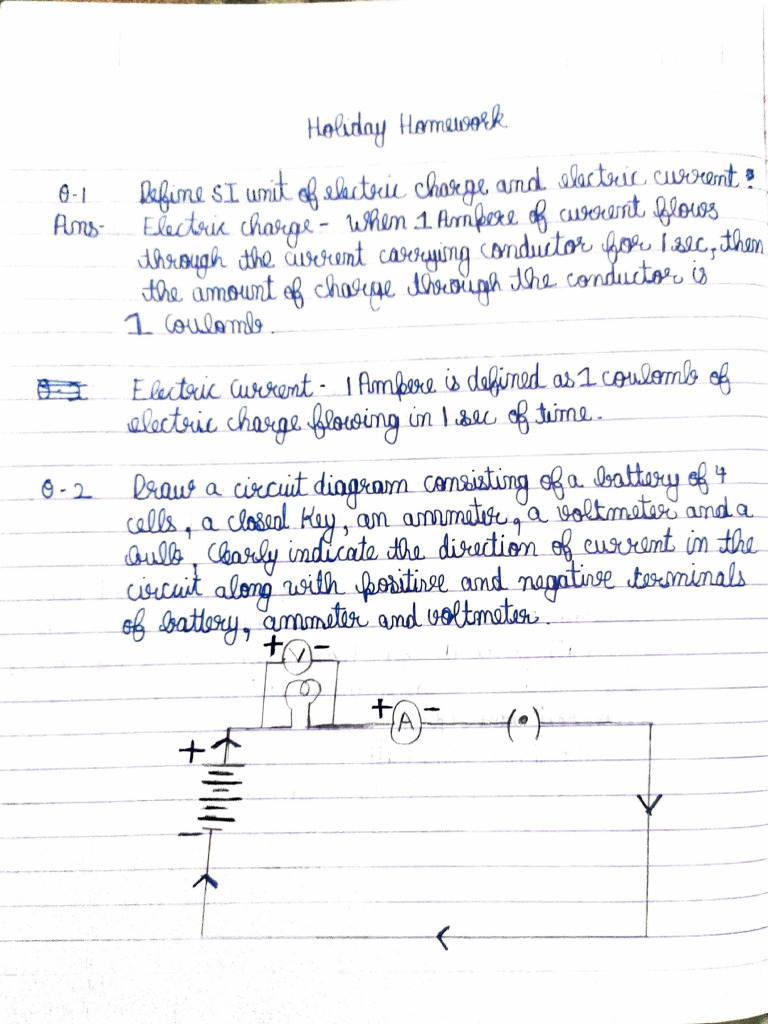 Holiday Homework
Q-1 Define SI unit of electric charge and electric current?
Ans- Electric charge - When 1 Ampere of current flows
through the current carrying conductor for 1 sec, then
the amount of charge through the conductor is
1 Coulomb.
Electric Current - 1 Ampere is defined as 1 coulomb of
electric charge flowing in 1 sec of time.
Q-2 Draw a circuit diagram consisting of a battery of 4
cells, a closed Key, an ammeter, a voltmeter and a
bulb, Clearly indicate the direction of current in the
circuit along with positive and negative terminals
of battery, ammeter and voltmeter.
+ V -
+ A -
(•)
+
-